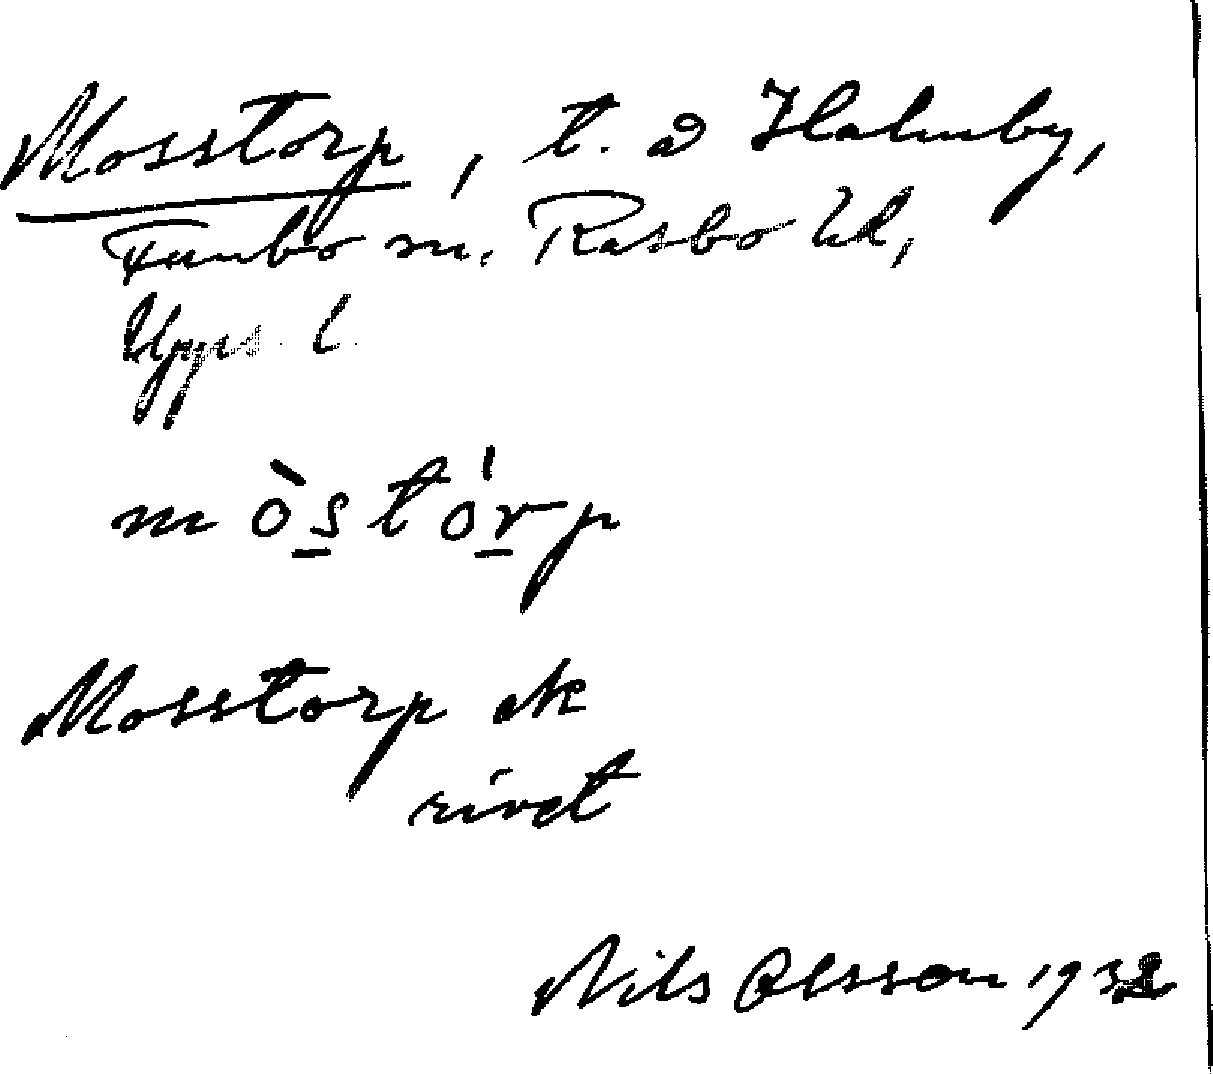 Mosstorp, t. å Halmby,
Funbo sn. Rasbo hd,
Upps. l.
mòs̲tór̲p
Mosstorp ek
rivet
Nils Olsson 1932